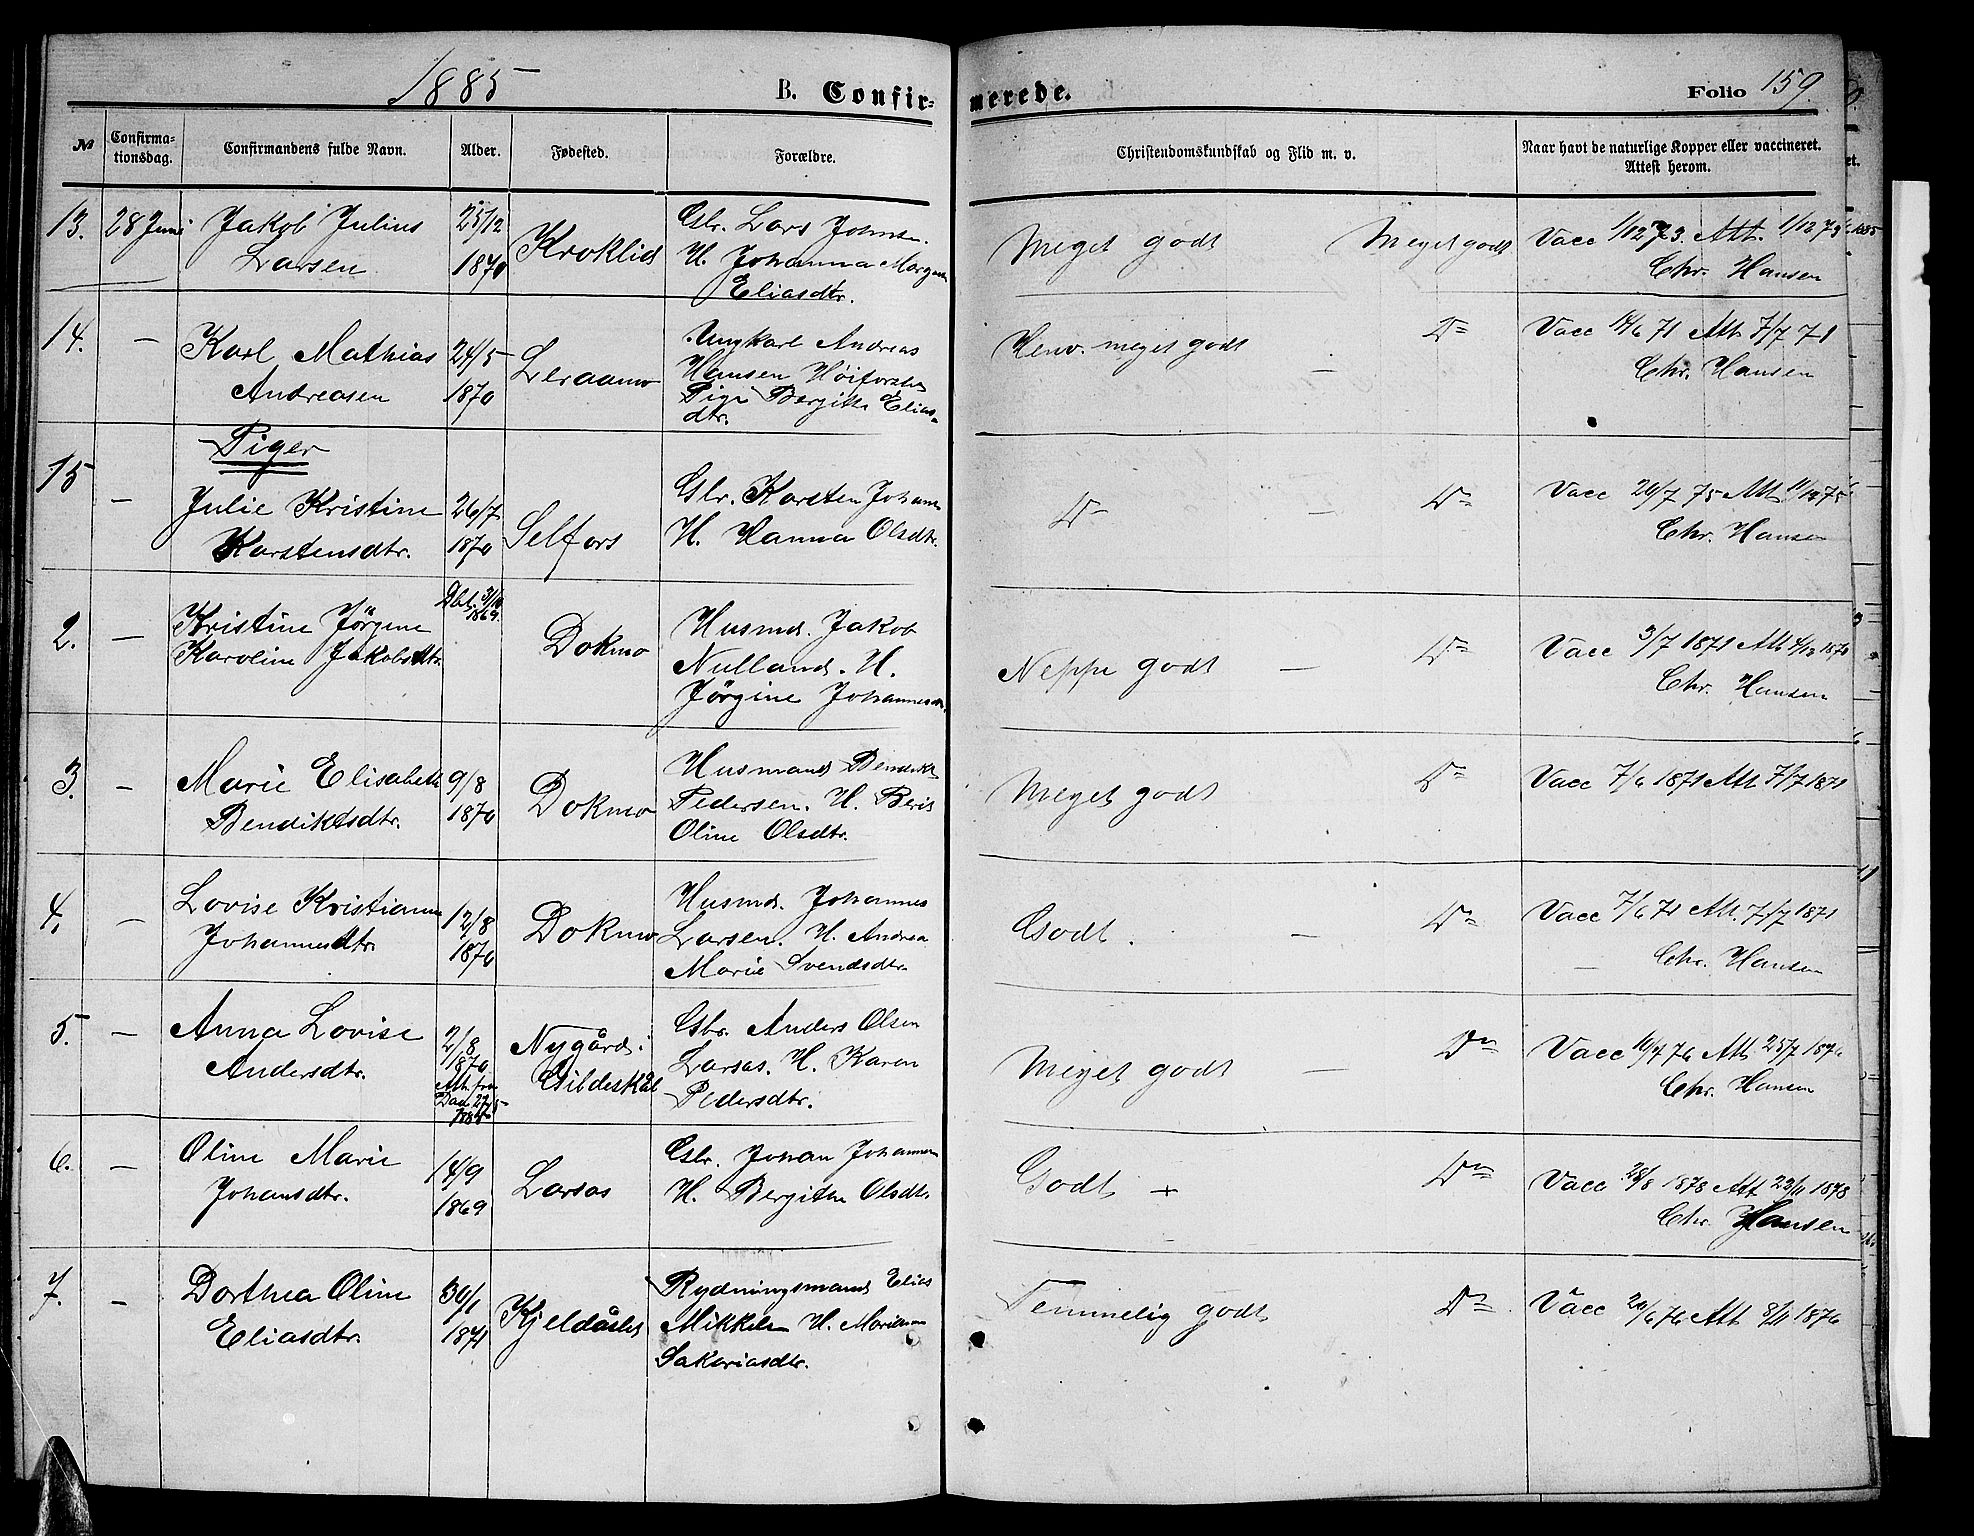 1885 B. Confir-
merede. Folio 159.
№ Confirma-tionsdag. Confirmandens fulde Navn. Alder. Fødested. Forældre. Christendomskundskab og Flid m. v. Naar havt de naturlige Kopper eller vaccineret. Attest herom.
13. 28 Juni Jakob Julius 25/12 Kroklid Gbr. Lars Johnsen. Meget godt Meget godt Vacc 1/12 73. Att. 1/12 73
Larsen 1870 H. Johanna Margr Chr. Hansen
Eliasdtr.
14. — Karl Mathias 24/5 Leraamo Ungkarl Andreas Henv. meget godt — Do Vacc 14/6 71 Att 7/7 71
Andreasen 1870 Hansen Høiforsten Chr. Hansen
Pige Bergitte Elias-
dtr.
Piger
15 — Julie Kristine 26/7 Selfors Gbr. Karsten Johans Do — Do Vacc 20/7 75 Att 11/12 75
Karstensdtr. 1870 H. Hanna Olsdtr. Chr. Hansen
2. — Kristine Jörgene Döbt. 3/10 1869 Dokmo Husmd. Jakob Neppe godt — Do Vacc 3/7 1871 Att
Karoline Jakobsdtr. Nulland. H. Chr. Hansen
Jörgine Johannesdr.
3. — Marie Elisabeth 9/8 Dokmo Husmand Bendikt Meget godt Do Vacc 7/6 1871 Att 7/7 1871
Bendiktsdtr. 1870 Pedersen. H. Berit
Oline Olsdtr.
4. — Lovise Kristianne 12/8 Dokmo Husmd. Johannes Godt. — Do Vacc 7/6 71 Att. 7/7 1871
Johannesdtr. 1870 Larsen. H. Andrea Chr. Hansen
Marie Svendsdtr.
5. — Anna Lovise 2/8 Nygård i Gbr. Anders Olsen Meget godt — Do Vacc 10/7 76 Att 25/7 1876
Andersdtr. 1870 Gildeskål Larsos. H. Karen Chr. Hansen
Att. fra Pedersdtr.
6. — Oline Marie 14/9 Larsos Gbr. Johan Johannes Godt + Do Vacc 28/8 1878 Att 23/11 1878
Johansdtr. 1869 H. Bergitha Olsdtr. Chr. Hansen
7. — Dorthea Oline 30/1 Kjeldåslet Rydningsmand Elias Temmelig godt Do Vacc 20/6 76 Att 8/11 1876
Eliasdtr. 1871 Mikkels H. Marianna
Sakariasdtr.